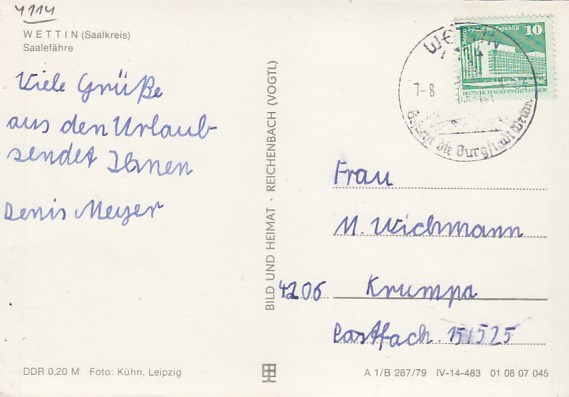 4114
WETTIN (Saalkreis)
Saalefähre
Viele Grüße
aus den Urlaub
sendet Ihnen
Denis Meyer
BILD UND HEIMAT · REICHENBACH (VOGTL)
WETTIN
7-8
Besucht die Burgstadt Wettin
10
DEUTSCHE DEMOKRATISCHE REPUBLIK
Frau
M. Wichmann
4206 Krumpa
Postfach 151525
DDR 0,20 M Foto: Kühn, Leipzig
A 1/B 287/79 IV-14-483 01 08 07 045